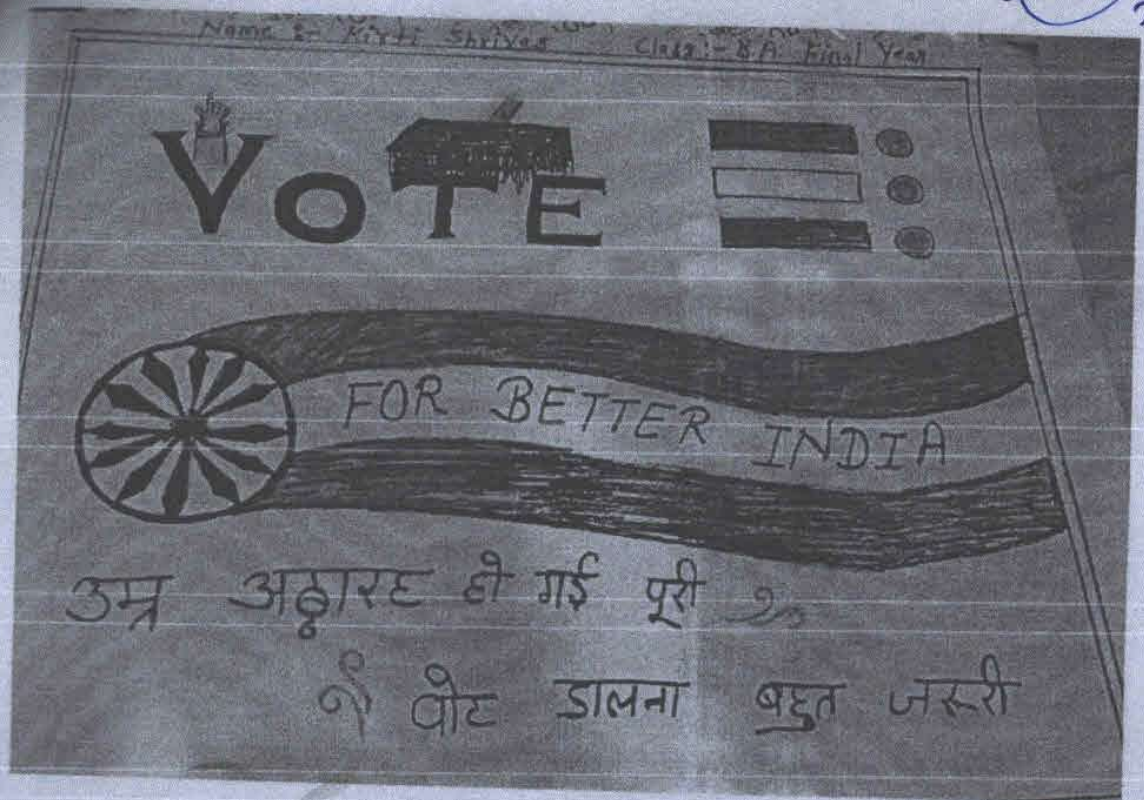 Name :- Kirti Shrivas Class :- B.A. Final Year
VOTE
FOR BETTER INDIA
उम्र अठ्ठारह हो गई पूरी
वोट डालना बहुत जरूरी